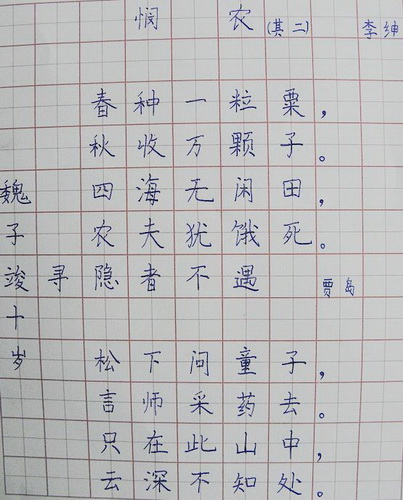 悯农(其二) 李绅
春种一粒粟，
秋收万颗子。
四海无闲田，
农夫犹饿死。
寻隐者不遇 贾岛
松下问童子，
言师采药去。
只在此山中，
云深不知处。
魏子竣十岁